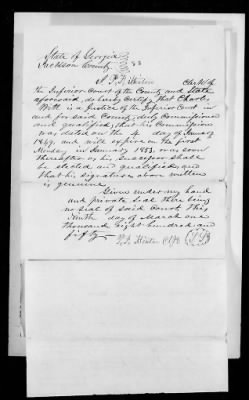 State of Georgia
Jackson County } SS
I, P. F. Hinton Clerk of
the Inferior Court of the County and State
aforesaid, do hereby Certify, that Charles
Witt is a Justice of the Inferior Court in
and for said County, duly Commissioned
and qualified, that his Commission
was dated on the 4 day of January
1849. and will expire on the first
Monday in January 1853. or as soon
thereafter as his Successor shall
be elected and qualified, and
that his signature above written
is genuine
Given under my hand
and private seal there being
no seal of said Court, this
Ninth day of March one
thousand Eight hundred and
fifty
P. F. Hinton Clk